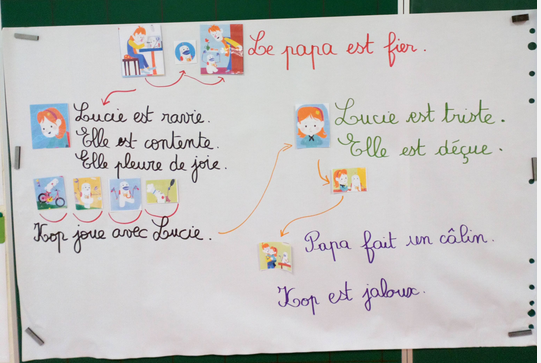 Le papa est fier.
Lucie est ravie.
Elle est contente.
Elle pleure de joie.
Kop joue avec Lucie.
Lucie est triste.
Elle est déçue.
Papa fait un câlin.
Kop est jaloux.